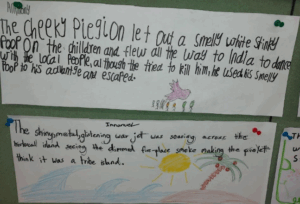 The cheeky Piegion let out a smelly white stinky
Poop on the children and flew all the way to India to dance
with the local People, as though the tried to kill him, he used his smelly
Poop to his advantge and escaped.
The shiny, metal, glistening war jet was soaring across the
turbual island seeing the dimmed fire-place smoke making the
think it was a tribe island.